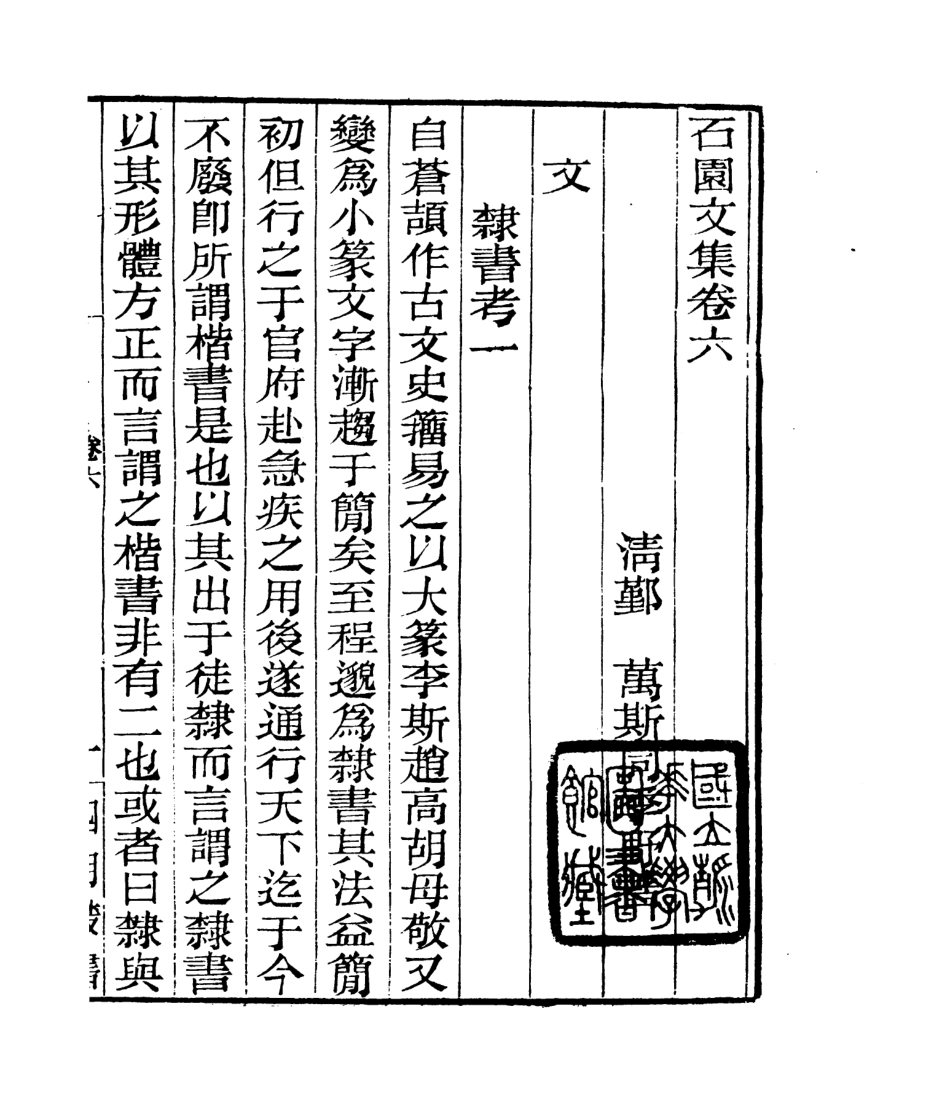 石園文集卷六
清鄞　萬斯同
文
隸書考一
自蒼頡作古文史籀易之以大篆李斯趙高胡母敬又
變爲小篆文字漸趨于簡矣至程邈爲隸書其法益簡
初但行之于官府赴急疾之用後遂通行天下迄于今
不廢卽所謂楷書是也以其出于徒隸而言謂之隸書
以其形體方正而言謂之楷書非有二也或者曰隸與
卷六
一
四明叢書
國立清
華大學
圖書
館藏